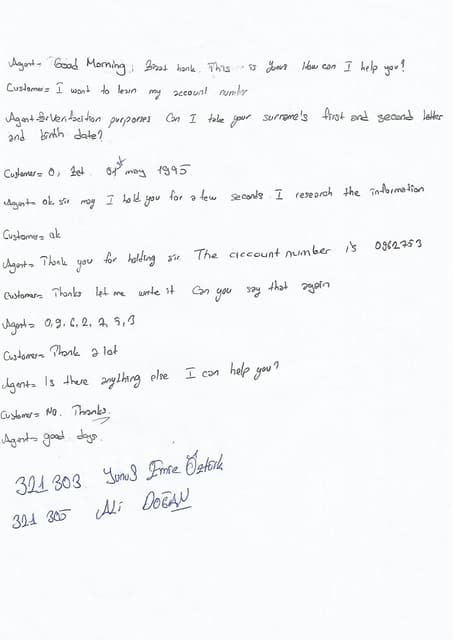 Agent= Good Morning, Ziraat bank. This is Yunus How can I help you?
Customer= I want to learn my account number
Agent= For Verifacition purpories Can I take your surname's first and second letter
and birth date?
Customer= O, Zet. 01st may 1995
Agent= ok sir may I hold you for a few seconds I research the information
Customer= ok
Agent= Thank you for holding sir. The account number is 0962753
Customer= Thanks let me write it Can you say that again
Agent= 0, 9, 6, 2, 7, 5, 3
Customer= Thank a lot
Agent= Is there anything else I can help you?
Customer= No. Thanks.
Agent= good days.
321 303 Yunus Emre Öztürk
321 305 Ali DOĞAN